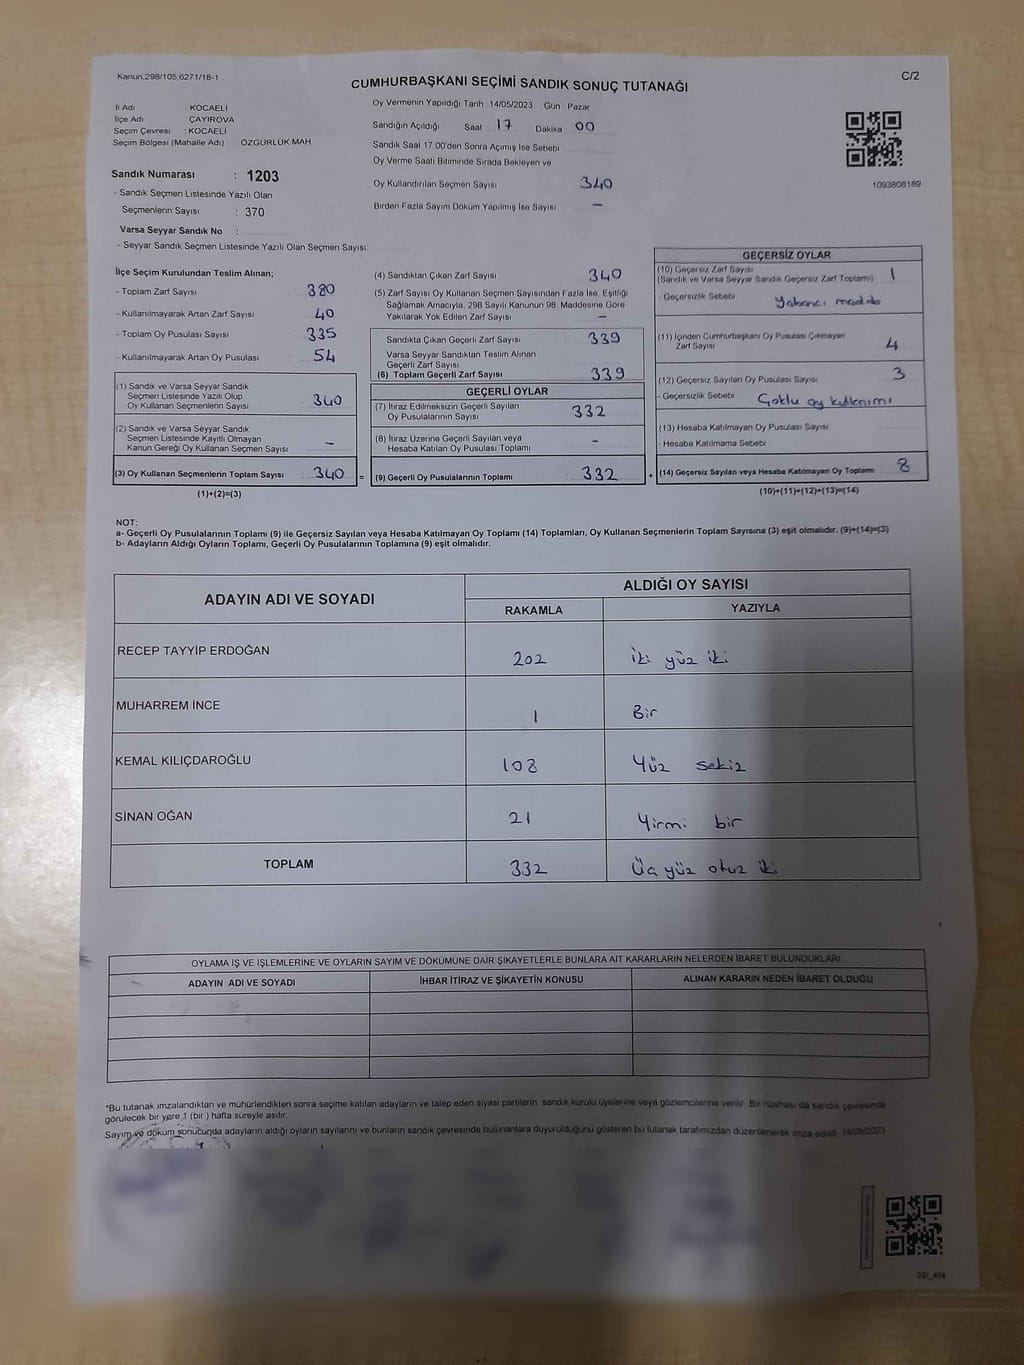 Kanun.298/105,6271/18-1
CUMHURBAŞKANI SEÇİMİ SANDIK SONUÇ TUTANAĞI
C/2
İl Adı KOCAELİ
İlçe Adı ÇAYIROVA
Seçim Çevresi : KOCAELİ
Seçim Bölgesi (Mahalle Adı) ÖZGÜRLÜK MAH
Sandık Numarası : 1203
- Sandık Seçmen Listesinde Yazılı Olan
Seçmenlerin Sayısı : 370
Varsa Seyyar Sandık No :
- Seyyar Sandık Seçmen Listesinde Yazılı Olan Seçmen Sayısı:
Oy Vermenin Yapıldığı Tarih :14/05/2023 Gün Pazar
Sandığın Açıldığı Saat 17 Dakika 00
Sandık Saat 17.00'den Sonra Açımış İse Sebebi
Oy Verme Saati Bitiminde Sırada Bekleyen ve
Oy Kullandırılan Seçmen Sayısı 340
Birden Fazla Sayım Döküm Yapılmış İse Sayısı –
1093808189
İlçe Seçim Kurulundan Teslim Alınan;
- Toplam Zarf Sayısı 380
- Kullanılmayarak Artan Zarf Sayısı 40
- Toplam Oy Pusulası Sayısı 335
- Kullanılmayarak Artan Oy Pusulası 54
(1) Sandık ve Varsa Seyyar Sandık
Seçmen Listesinde Yazılı Olup
Oy Kullanan Seçmenlerin Sayısı 340
(2) Sandık ve Varsa Seyyar Sandık
Seçmen Listesinde Kayıtlı Olmayan
Kanun Gereği Oy Kullanan Seçmen Sayısı –
(3) Oy Kullanan Seçmenlerin Toplam Sayısı 340 =
(1)+(2)=(3)
(4) Sandıktan Çıkan Zarf Sayısı 340
(5) Zarf Sayısı Oy Kullanan Seçmen Sayısından Fazla İse, Eşitliği
Sağlamak Amacıyla, 298 Sayılı Kanunun 98. Maddesine Göre
Yakılarak Yok Edilen Zarf Sayısı –
Sandıkta Çıkan Geçerli Zarf Sayısı 339
Varsa Seyyar Sandıktan Teslim Alınan
Geçerli Zarf Sayısı
(6) Toplam Geçerli Zarf Sayısı 339
GEÇERLİ OYLAR
(7) İtiraz Edilmeksizin Geçerli Sayılan
Oy Pusulalarının Sayısı 332
(8) İtiraz Üzerine Geçerli Sayılan veya
Hesaba Katılan Oy Pusulası Toplamı –
(9) Geçerli Oy Pusulalarının Toplamı 332 +
GEÇERSİZ OYLAR
(10) Geçersiz Zarf Sayısı 1
(Sandık ve Varsa Seyyar Sandık Geçersiz Zarf Toplamı)
- Geçersizlik Sebebi Yabancı madde
(11) İçinden Cumhurbaşkanı Oy Pusulası Çıkmayan
Zarf Sayısı 4
(12) Geçersiz Sayılan Oy Pusulası Sayısı 3
- Geçersizlik Sebebi Çoklu oy kullanımı
(13) Hesaba Katılmayan Oy Pusulası Sayısı
- Hesaba Katılmama Sebebi
(14) Geçersiz Sayılan veya Hesaba Katılmayan Oy Toplamı 8
(10)+(11)+(12)+(13)=(14)
NOT:
a- Geçerli Oy Pusulalarının Toplamı (9) ile Geçersiz Sayılan veya Hesaba Katılmayan Oy Toplamı (14) Toplamları, Oy Kullanan Seçmenlerin Toplam Sayısına (3) eşit olmalıdır. (9)+(14)=(3)
b- Adayların Aldığı Oyların Toplamı, Geçerli Oy Pusulalarının Toplamına (9) eşit olmalıdır.
ADAYIN ADI VE SOYADI
ALDIĞI OY SAYISI
RAKAMLA YAZIYLA
RECEP TAYYİP ERDOĞAN 202 iki yüz iki
MUHARREM İNCE 1 Bir
KEMAL KILIÇDAROĞLU 108 Yüz sekiz
SİNAN OĞAN 21 Yirmi bir
TOPLAM 332 Üç yüz otuz iki
OYLAMA İŞ VE İŞLEMLERİNE VE OYLARIN SAYIM VE DÖKÜMÜNE DAİR ŞİKAYETLERLE BUNLARA AİT KARARLARIN NELERDEN İBARET BULUNDUKLARI
ADAYIN ADI VE SOYADI İHBAR İTİRAZ VE ŞİKAYETİN KONUSU ALINAN KARARIN NEDEN İBARET OLDUĞU
*Bu tutanak imzalandıktan ve mühürlendikten sonra seçime katılan adayların ve talep eden siyasi partilerin sandık kurulu üyelerine veya gözlemcilerine verilir. Bir nüshası da sandık çevresinde
görülecek bir yere 1 (bir ) hafta süreyle asılır.
Sayım ve döküm sonucunda adayların aldığı oyların sayılarını ve bunların sandık çevresinde bulunanlara duyurulduğunu gösteren bu tutanak tarafımızdan düzenlenerek imza edildi. 14/05/2023